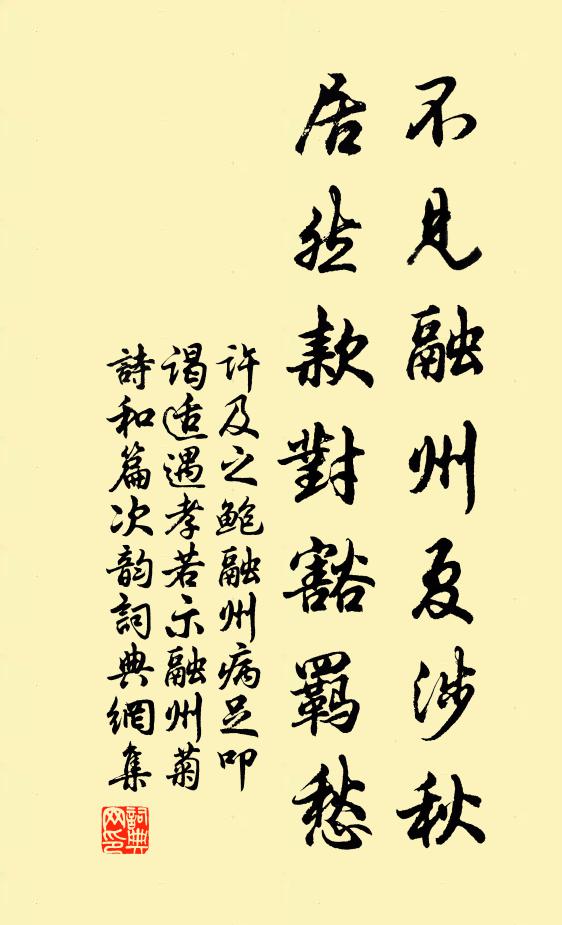 不見融州夏涉秋
居然款對豁羈愁
許及之鮑融州病足叩
謁适遇孝若示融州菊
詩和篇次韵詞典網集
詞典網印